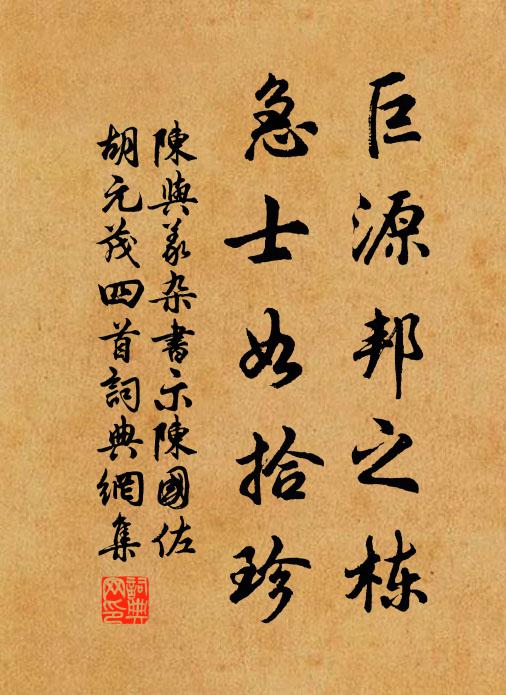 巨源邦之栋
急士如拾珍
陳與義杂書示陳國佐
胡元茂四首詞典網集
詞典网印